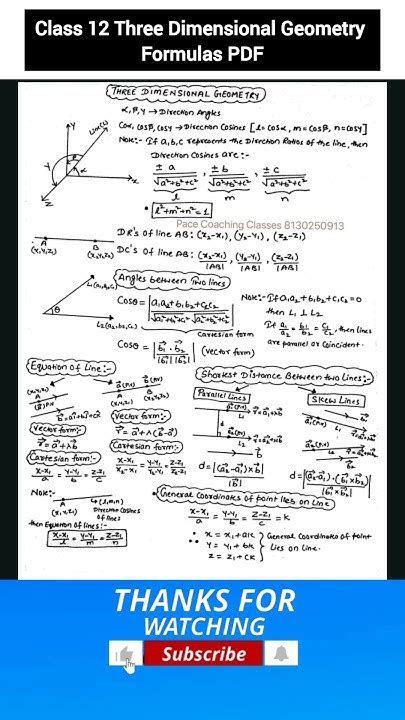 Class 12 Three Dimensional Geometry
Formulas PDF
THREE DIMENSIONAL GEOMETRY
α, β, γ → Direction Angles
Cosα, Cosβ, Cosγ → Direction Cosines [l = Cosα, m = Cosβ, n = Cosγ]
Note:- If a, b, c represents the Direction Ratios of the line, then
Direction Cosines are :-
± a / √a²+b²+c² , ± b / √a²+b²+c² , ± c / √a²+b²+c²
l m n
• l²+m²+n² = 1
Line(L)
Y
X
Z
Pace Coaching Classes 8130250913
DR's of line AB: (x₂-x₁), (y₂-y₁), (z₂-z₁)
DC's of line AB: (x₂-x₁)/|AB| , (y₂-y₁)/|AB| , (z₂-z₁)/|AB|
A
B
Angles between Two lines
L₂(a₂,b₂,c₂)
θ
Cosθ = |a₁a₂+b₁b₂+c₁c₂ / √a₁²+b₁²+c₁² √a₂²+b₂²+c₂²|
Cartesian form
Cosθ = |b₁⃗ · b₂⃗ / |b₁⃗| |b₂⃗|| (Vector form)
Note:- If a₁a₂+b₁b₂+c₁c₂ = 0
then L₁ ⊥ L₂
If a₁/a₂ = b₁/b₂ = c₁/c₂, then lines
are parallel or Coincident.
Equation of Line:-
Vector form:-
r⃗ = a⃗+λb⃗
Cartesian form:-
x-x₁/a = y-y₁/b = z-z₁/c
Vector form:-
r⃗ = a⃗+λ(b⃗-a⃗)
Cartesian form:-
x-x₁/x₂-x₁ = y-y₁/y₂-y₁ = z-z₁/z₂-z₁
Note:-
A
(x₁,y₁,z₁)
(l,m,n)
Direction Cosines
of lines
then Equation of lines:-
x-x₁/l = y-y₁/m = z-z₁/n
Shortest Distance Between two lines:-
Parallel Lines
L₁
L₂
d = |(a₂⃗-a₁⃗)×b⃗ / |b⃗||
Skew Lines
L₁
d = |(a₂⃗-a₁⃗)·(b₁⃗×b₂⃗) / |b₁⃗×b₂⃗||
• General Coordinates of point lies on Line
x-x₁/a = y-y₁/b = z-z₁/c = k
∴ x = x₁+ak
y = y₁+bk
z = z₁+ck
General Coordinates of point
lies on line.
THANKS FOR
WATCHING
Subscribe